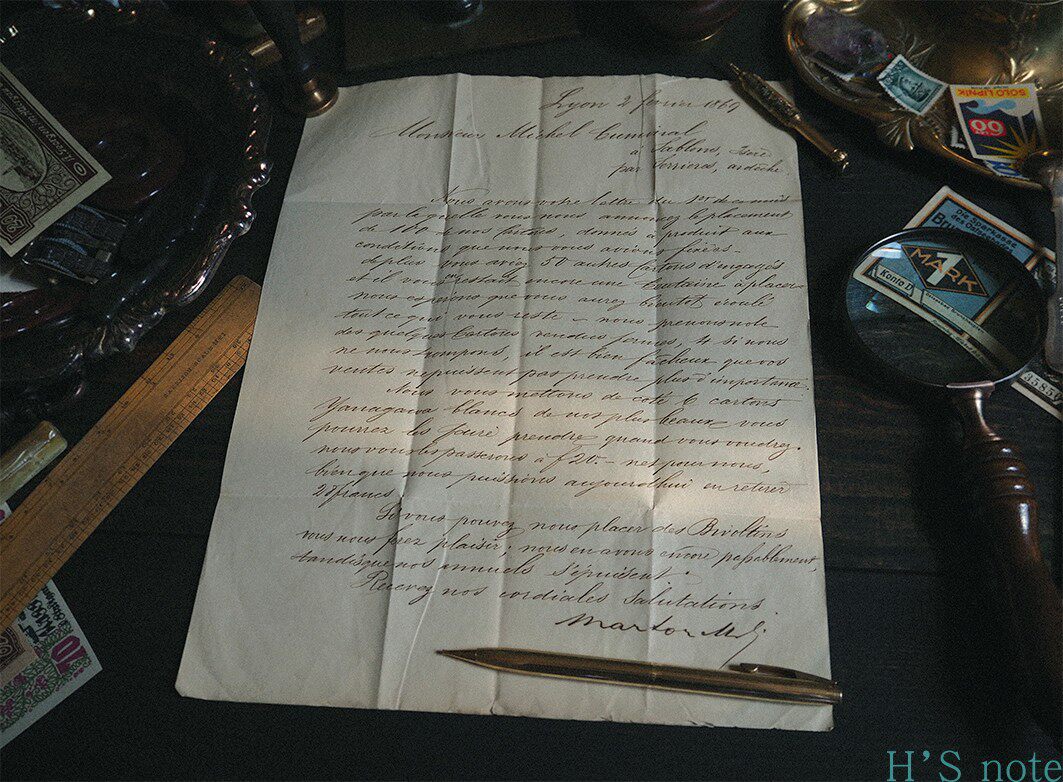 Lyon 2 fevrier 1869
Monsieur Michel
à Sablons, Isère
par Serrieres, ardèche
Nous avons votre lettre du 1er de ce mois
par laquelle vous nous annoncez le placement
de 160 de nos cartons donnés à produit aux
conditions que nous vous avions fixées.
de plus vous aviez 50 autres cartons d'engagés
et il vous en restait encore une à placer
nous esperons que vous aurez bientôt écoulé
tout ce qui vous reste - nous prenons note
des quelques Cartons vendus fermes, & si nous
ne nous trompons, il est bien facheux que vos
ventes ne puissent pas prendre plus d'importance.
Nous vous mettons de coté 6 cartons
Yanagawa blancs de nos plus beaux vous
pourrez les faire prendre quand vous voudrez.
nous vous les passerons à f 20.- net pour nous,
bien que nous puissions aujourd'hui en retirer
25 francs
Si vous pouvez nous placer des Bivoltins
vous nous ferez plaisir, nous en avons encore passablement,
tandis que nos annuels s'épuisent.
Recevez nos cordiales salutations
SOLO LIPNIK
60
Die Sparkasse
1
MARK
Konto
H'S note